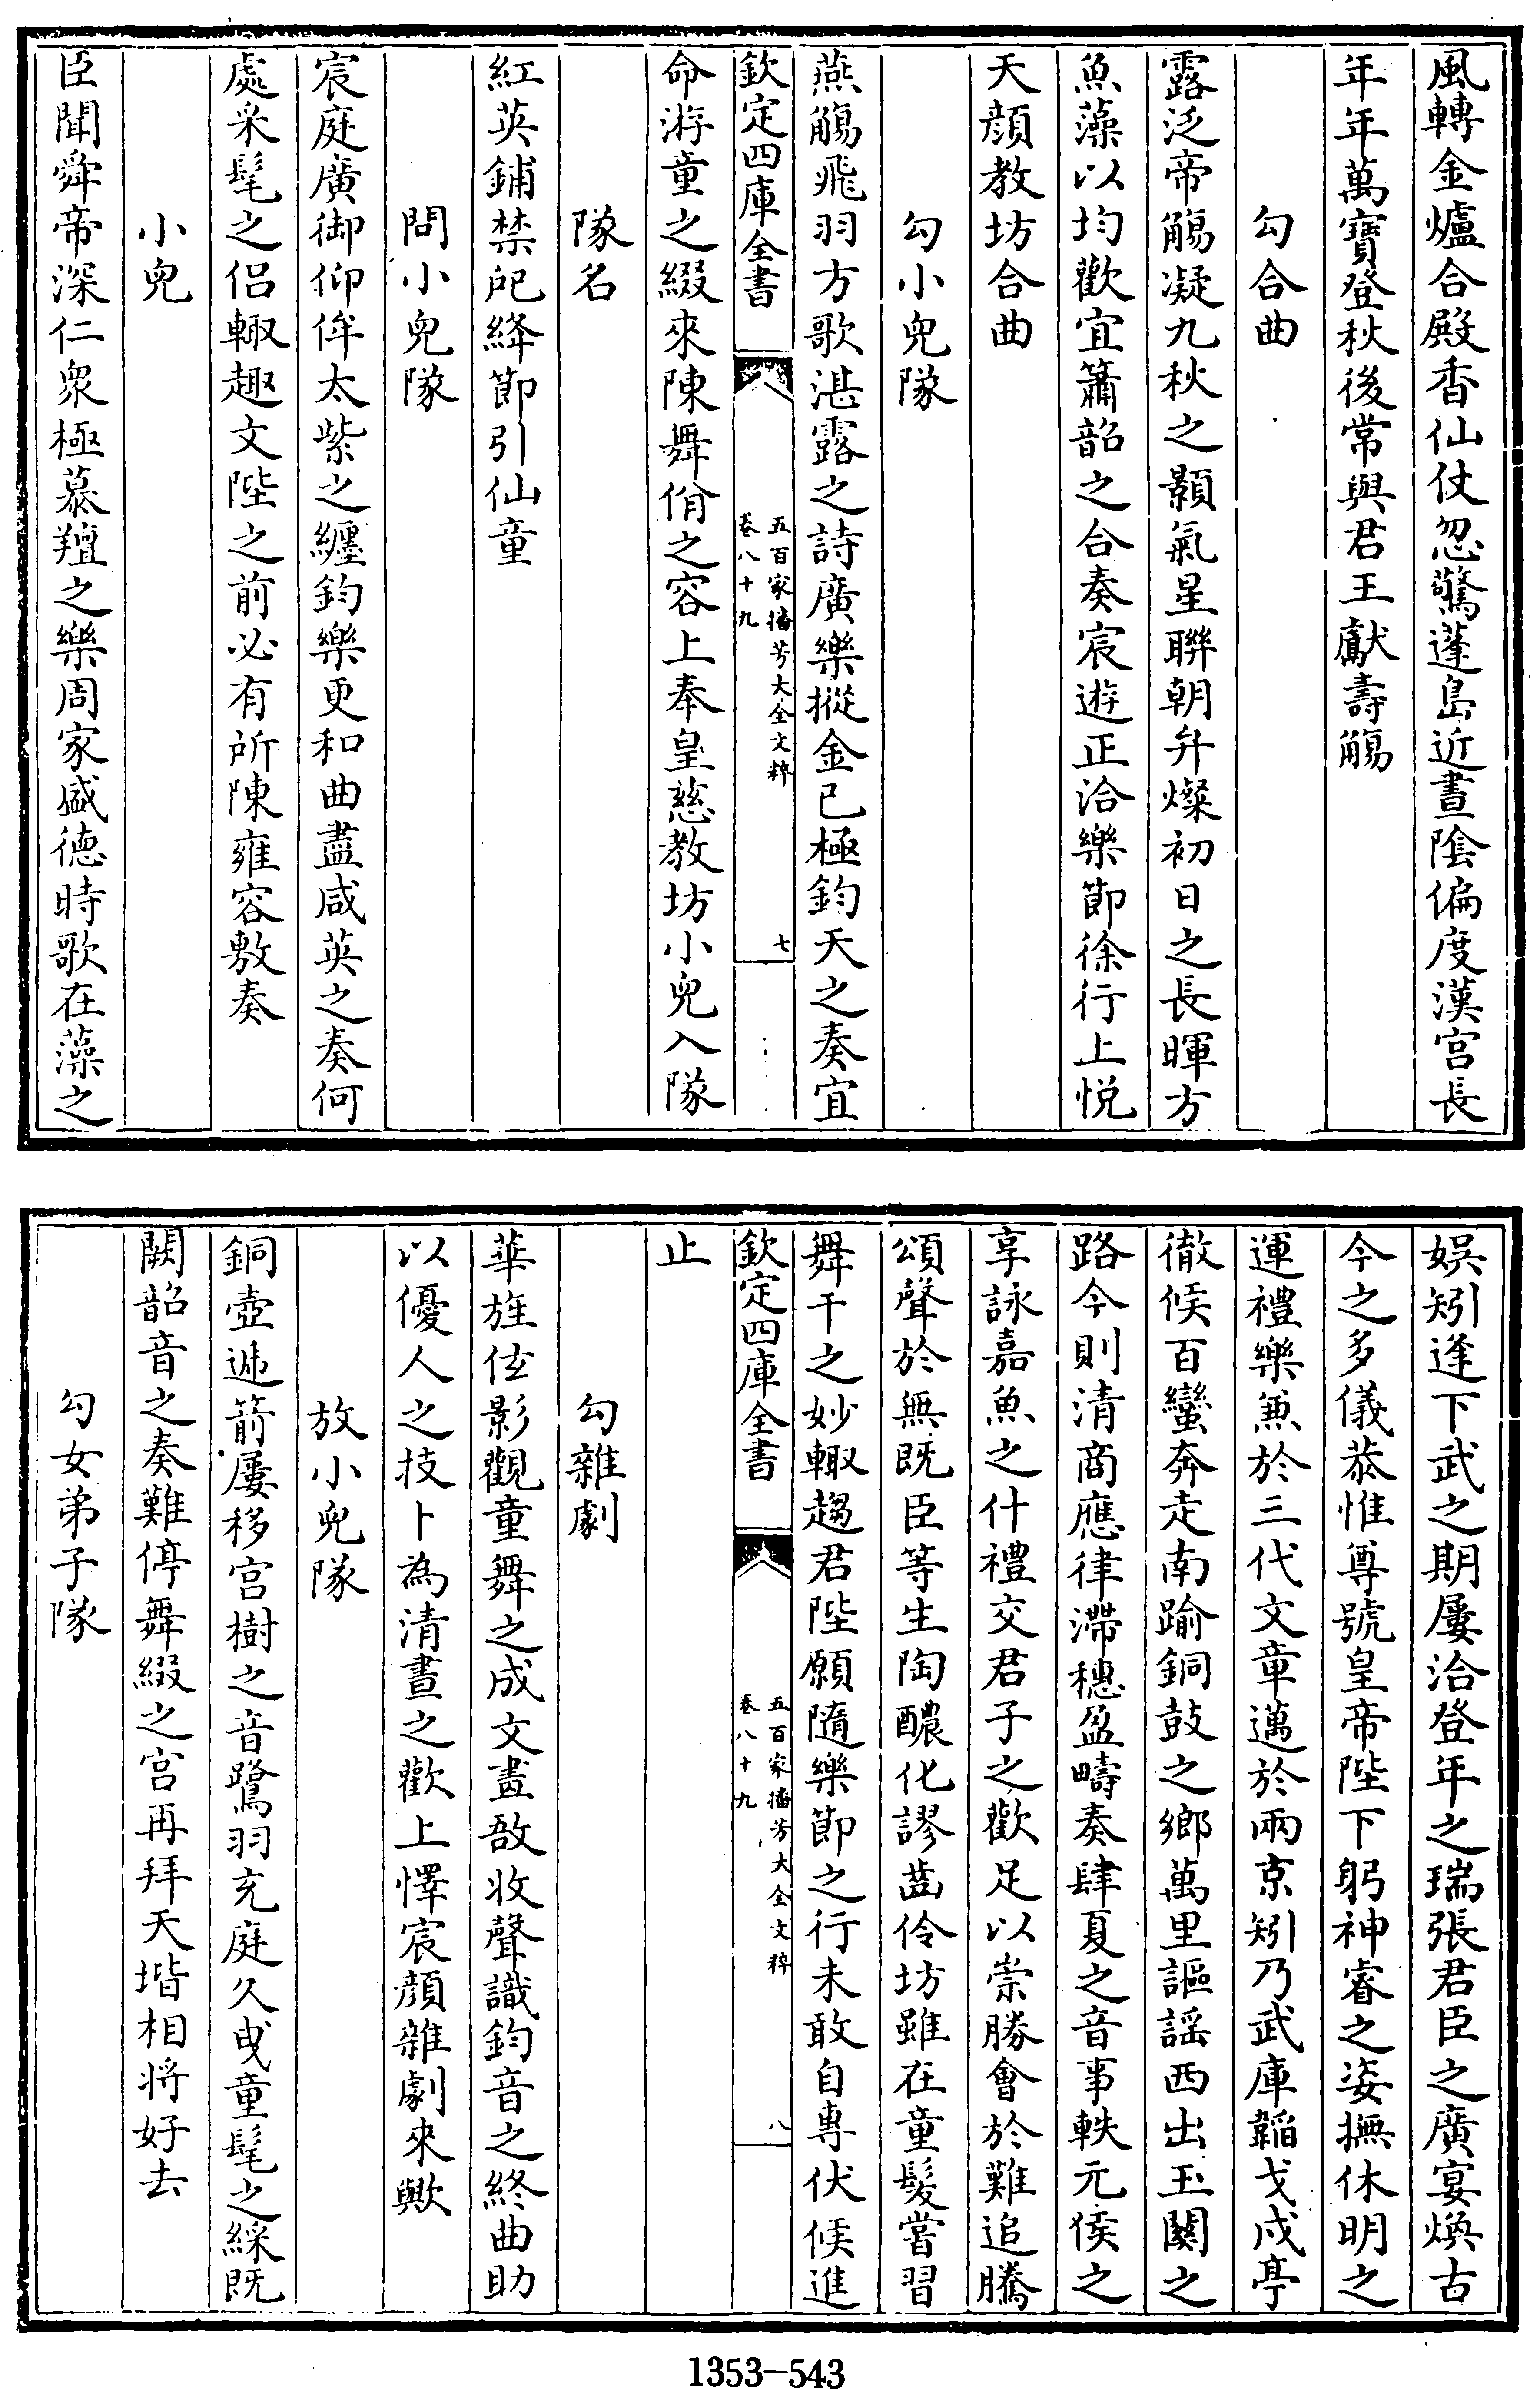 風轉金爐合殿香仙仗忽驚蓬島近晝陰偏度漢宫長
年年萬寳登秋後常與君王獻壽觴
勾合曲
露泛帝觴凝九秋之顥氣星聯朝弁燦初日之長暉方
魚藻以均歡宜簫韶之合奏宸遊正洽樂節徐行上悦
天顔教坊合曲
勾小兒隊
燕觴飛羽方歌湛露之詩廣樂摐金已極鈞天之奏宜
欽定四庫全書
五百家播芳大全文粹
卷八十九
七
命游童之綴來陳舞佾之容上奉皇慈教坊小兒入隊
隊名
紅英鋪禁戺絳節引仙童
問小兒隊
宸庭廣御仰侔太紫之纒鈞樂更和曲盡咸英之奏何
處采髦之侣輙趣文陛之前必有所陳雍容敷奏
小兒
臣聞舜帝深仁衆極慕羶之樂周家盛徳時歌在藻之
娯矧逢下武之期屢洽登年之瑞張君臣之廣宴煥古
今之多儀恭惟尊號皇帝陛下躬神睿之姿撫休明之
運禮樂兼於三代文章邁於兩京矧乃武庫韜戈戍亭
徹候百蠻奔走南踰銅鼓之鄉萬里謳謡西出玉關之
路今則清商應律滯穗盈疇奏肆夏之音事軼元侯之
享詠嘉魚之什禮交君子之歡足以崇勝會於難追騰
頌聲於無既臣等生陶醲化謬齒伶坊雖在童髮嘗習
舞干之妙輙趨君陛願隨樂節之行未敢自專伏候進
欽定四庫全書
五百家播芳大全文粹
卷八十九
八
止
勾雜劇
華旌佉影觀童舞之成文畫敔收聲識鈞音之終曲助
以優人之技卜為清晝之歡上懌宸顔雜劇來歟
放小兒隊
銅壺遞箭屢移宫樹之音鷺羽充庭久曵童髦之綵既
闋韶音之奏難停舞綴之宫再拜天堦相將好去
勾女弟子隊
1353-543